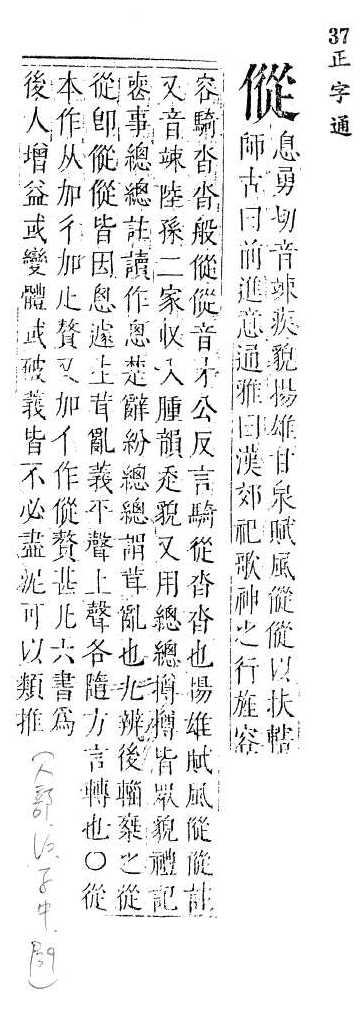 37正字通
傱
息勇切音竦疾貌揚雄甘泉賦風傱傱以扶轄
師古曰前進意通雅曰漢郊祀歌神之行旌容
容騎沓沓般傱傱音才公反言騎從沓沓也揚雄賦風傱傱註
又音竦陸孫二家収入腫韻走貌又用總總撙撙皆眾貌禮記
喪事總總註讀作悤楚辭紛總總謂茸亂也九辨後輜椉之從
從卽傱傱皆因悤遽上茸亂義平聲上聲各隨方言轉也○從
本作从加彳加止贅又加亻作傱贅甚此六書爲
後人增益或變體或破義皆不必盡泥可以類推
(人部